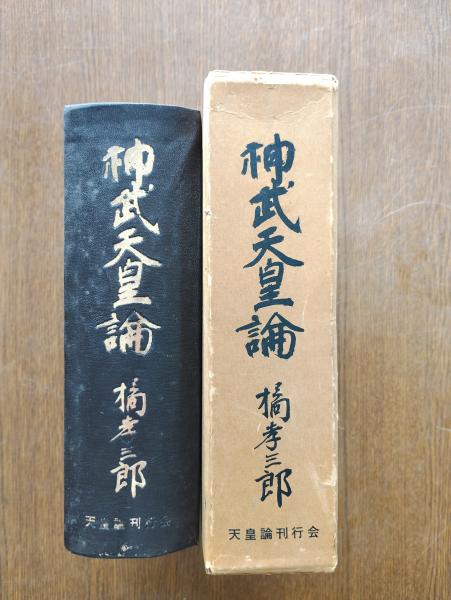 神武天皇論
橘孝三郎
天皇論刊行会
神武天皇論
橘孝三郎
天皇論刊行会